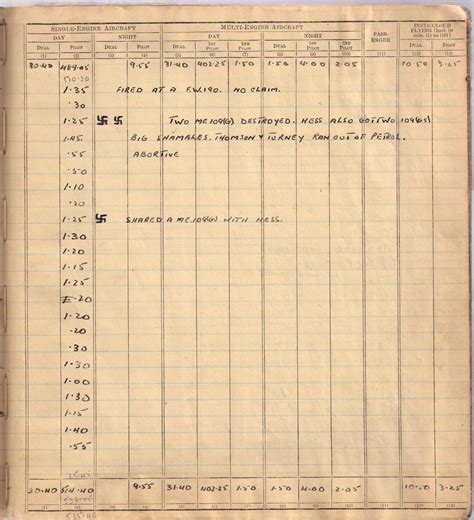 SINGLE-ENGINE AIRCRAFT MULTI-ENGINE AIRCRAFT PASS-ENGER INSTR/CLOUD FLYING [Incl. in
DAY NIGHT DAY NIGHT
DUAL PILOT DUAL PILOT DUAL 1ST PILOT 2ND PILOT DUAL 1ST PILOT 2ND PILOT DUAL PILOT
(1) (2) (3) (4) (5) (6) (7) (8) (9) (10) (11) (12) (13)
30.40 489.05 9.55 31.40 402.25 1.50 1.50 4.00 2.05 10.50 3.25
1.35 FIRED AT A F.W.190. NO CLAIM.
.30
1.25 卐 卐 TWO ME.109(G) DESTROYED. HESS ALSO GOT TWO 109(G)S
1.45 BIG SHAMBLES. THOMSON & TURNEY RAN OUT OF PETROL.
.55 ABORTIVE
.30
1.10
.20
1.25 卐 SHARED A ME.109(G) WITH HESS.
1.30
1.20
1.15
1.25
.20
1.20
.20
.30
1.30
1.00
1.30
1.15
1.40
.55
30.40 514.40 9.55 31.40 402.25 1.50 1.50 4.00 2.05 10.50 3.25
(1) (2) (3) (4) (5) (6) (7) (8) (9) (10) (11) (12) (13)